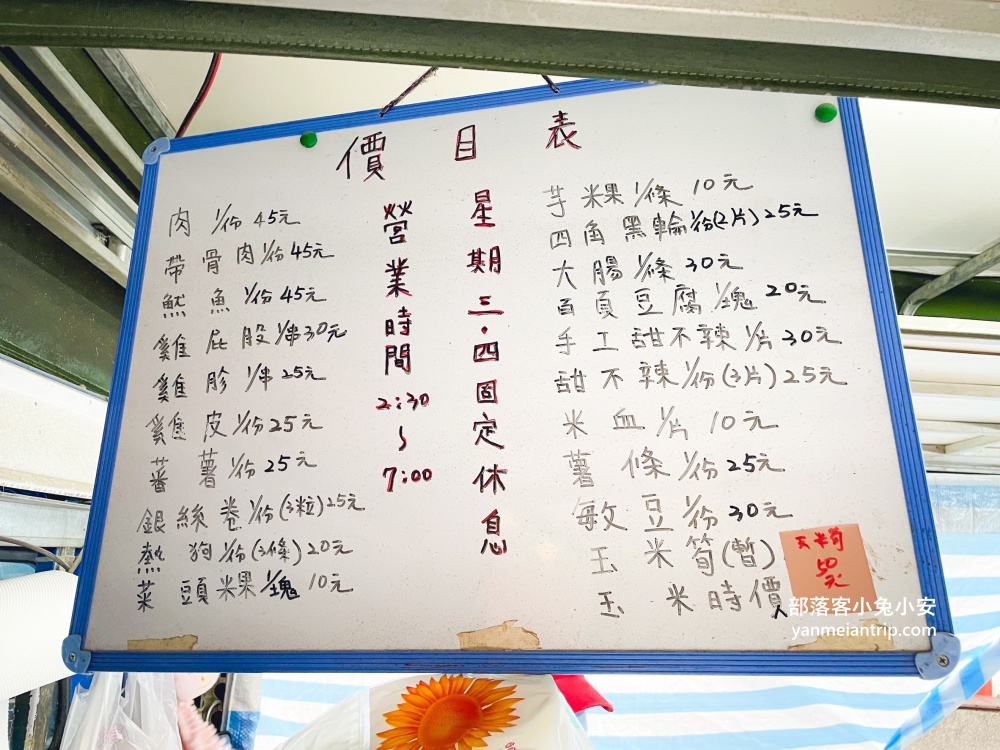 價目表
肉 1/份 45元
帶骨肉 1/份 45元
魷魚 1/份 45元
雞屁股 1/串 30元
雞胗 1/串 25元
雞皮 1/份 25元
蕃薯 1/份 25元
銀絲卷 1/份(3粒) 25元
熱狗 1/份(3條) 20元
菜頭粿 1/塊 10元
營業時間
2:30
~
7:00
星期三.四固定休息
芋粿 1/條 10元
四角黑輪 1/份(2片) 25元
大腸 1/條 30元
百頁豆腐 1/塊 20元
手工甜不辣 1/片 30元
甜不辣 1/份(3片) 25元
米血 1/片 10元
薯條 1/份 25元
敏豆 1/份 30元
玉米筍(暫)
玉米時價
玉米筍
50
元
部落客小兔小安
yanmeiantrip.com